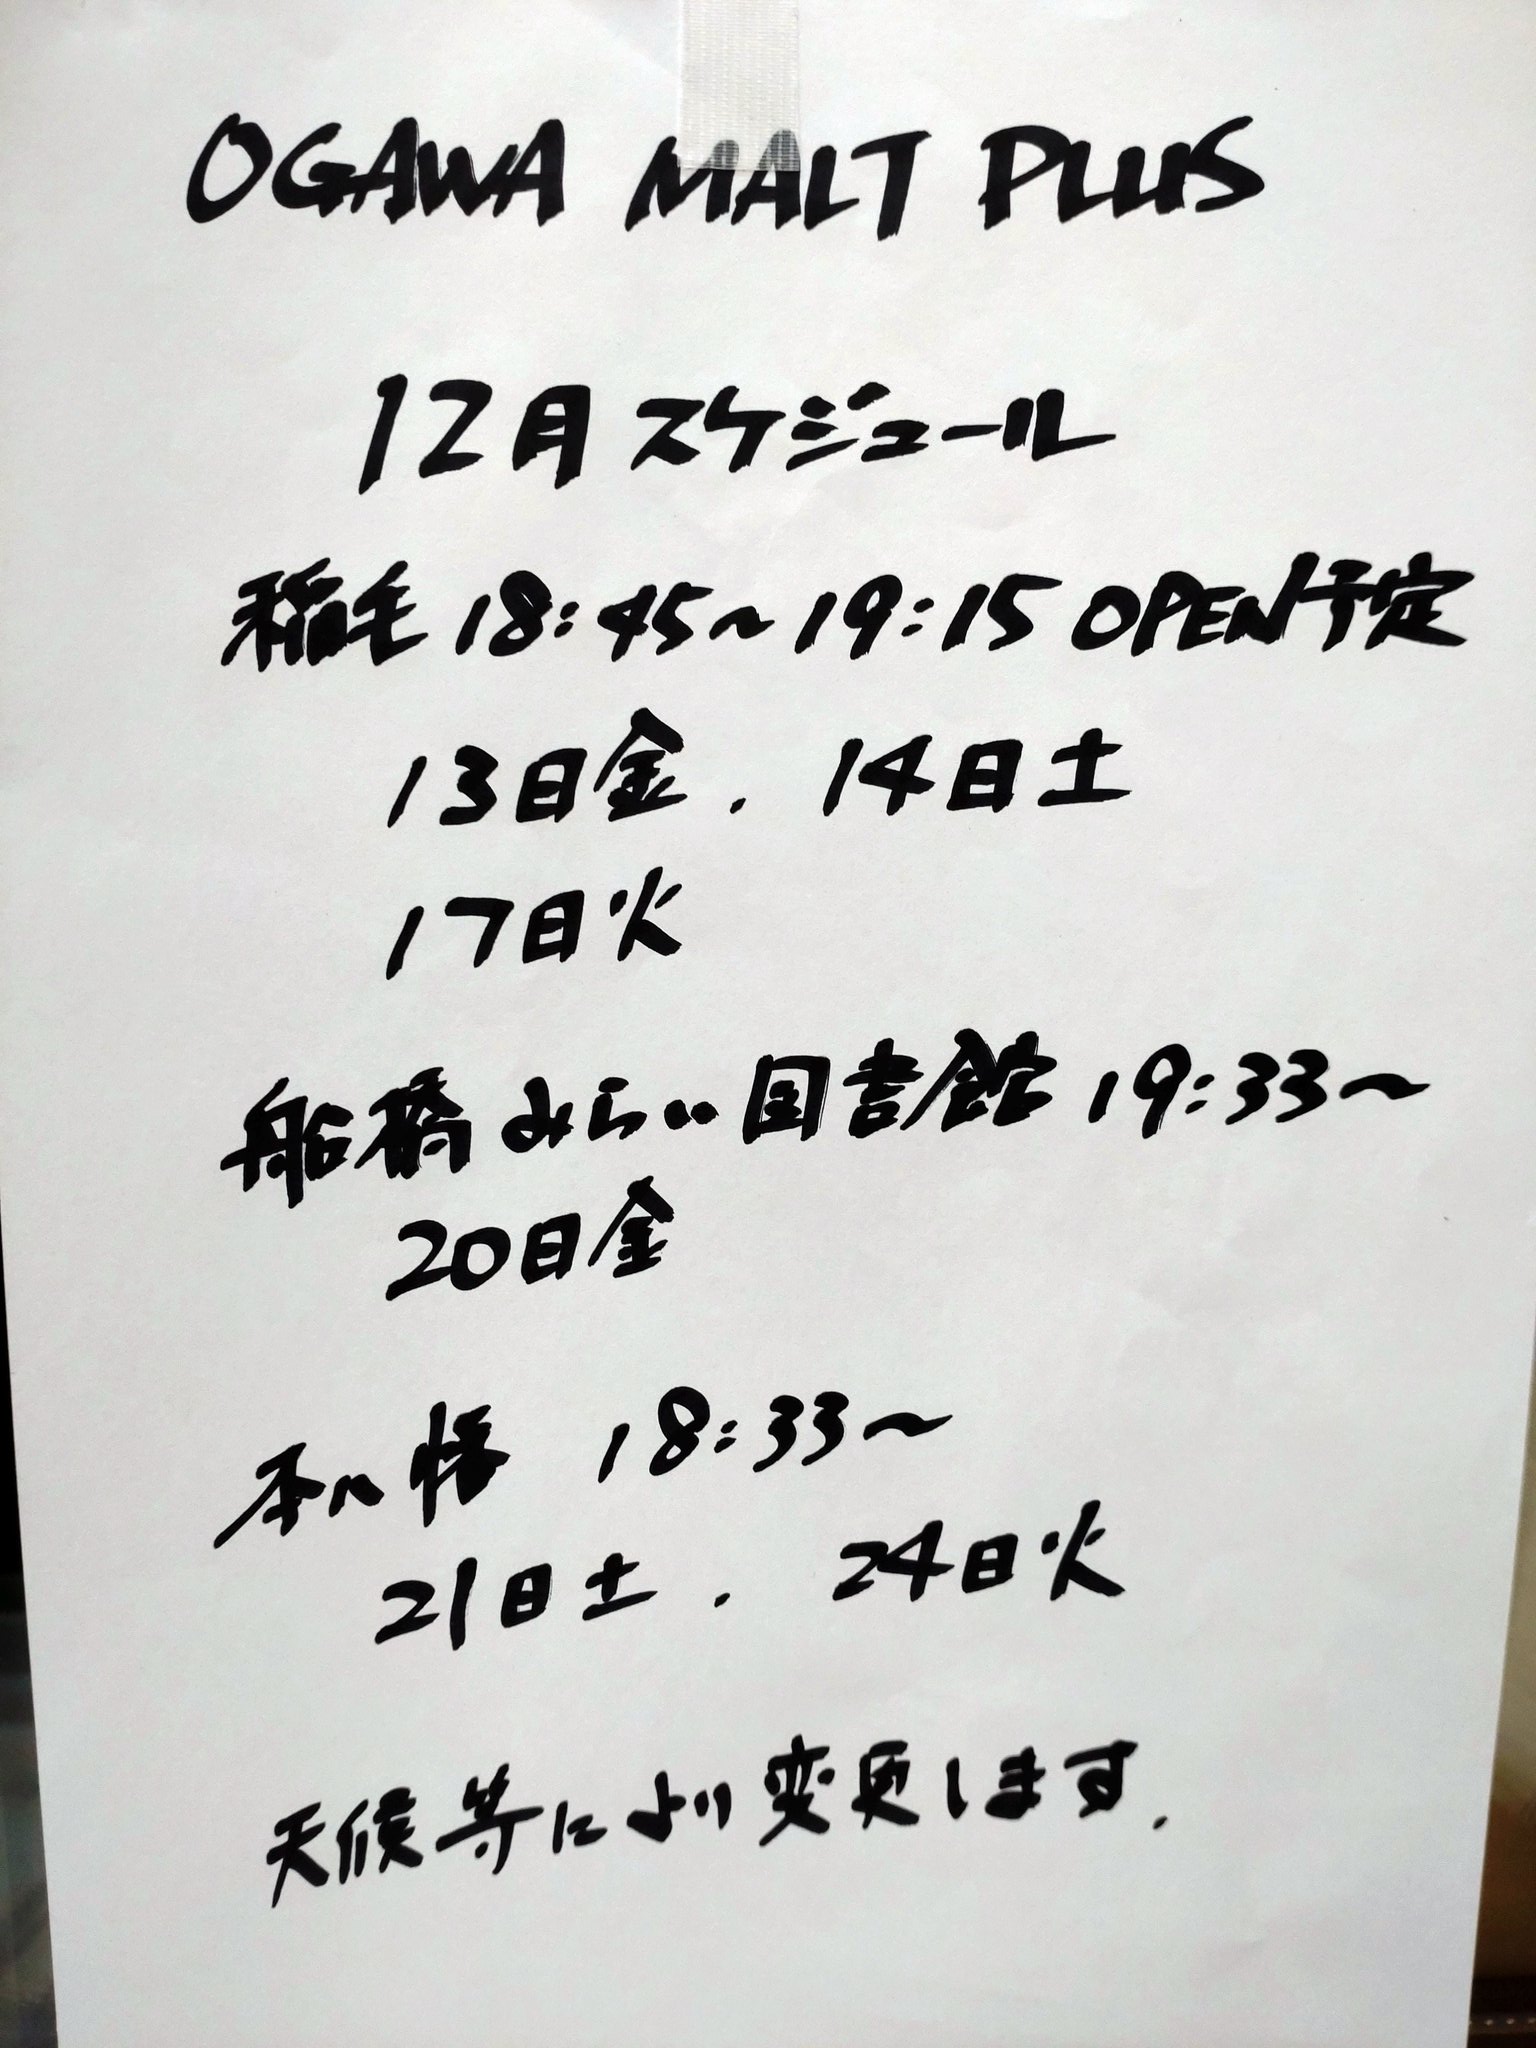 OGAWA MALT PLUS
12月スケジュール
稲毛 18:45〜19:15 OPEN予定
13日金. 14日土
17日火
船橋みらい図書館 19:33〜
20日金
本八幡 18:33〜
21日土. 24日火
天候等により変更します.